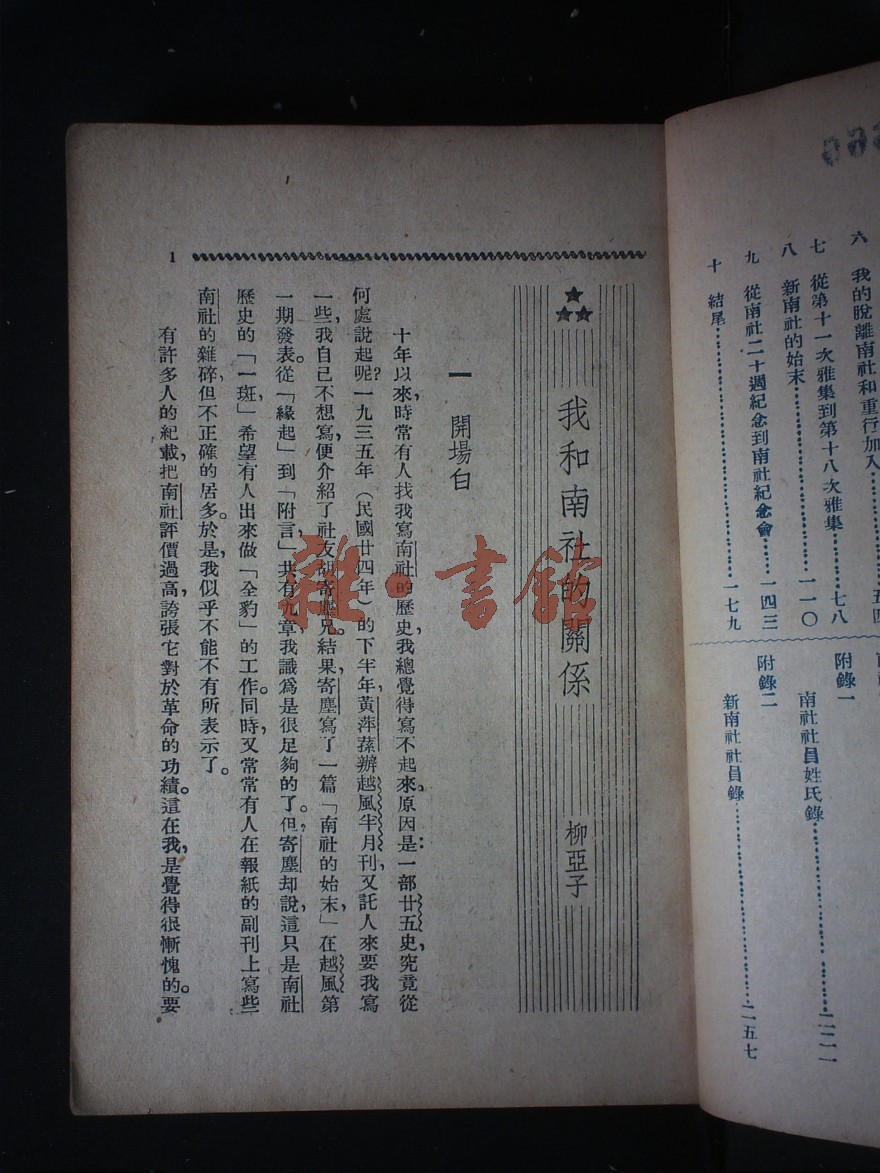 六　我的脫離南社和重行加入……………五四
七　從第十一次雅集到第十八次雅集……七八
八　新南社的始末……………一一〇
九　從南社二十週紀念到南社紀念會……一四三
十　結尾……………一七九
附錄一
南社社員姓氏錄……………二二一
附錄二
新南社社員錄……………二五七
我和南社的關係
柳亞子
一　開場白
十年以來，時常有人找我寫南社的歷史，我總覺得寫不起來。原因是：一部廿五史，究竟從
何處說起呢？一九三五年（民國廿四年）的下半年，黃萍蓀辦越風半月刊，又託人來要我寫
一些，我自己不想寫，便介紹了社友胡寄塵兄。結果，寄塵寫了一篇「南社的始末」，在越風第
一期發表。從「緣起」到「附言」，共有九章，我識爲是很足夠的了。但寄塵却說，這只是南社
歷史的「一斑」，希望有人出來做「全豹」的工作。同時，又常常有人在報紙的副刊上寫些
南社的雜碎，但不正確的居多。於是，我似乎不能不有所表示了。
有許多人的紀載，把南社評價過高，誇張它對於革命的功績。這在我，是覺得很慚愧的。要
1
雜·書館